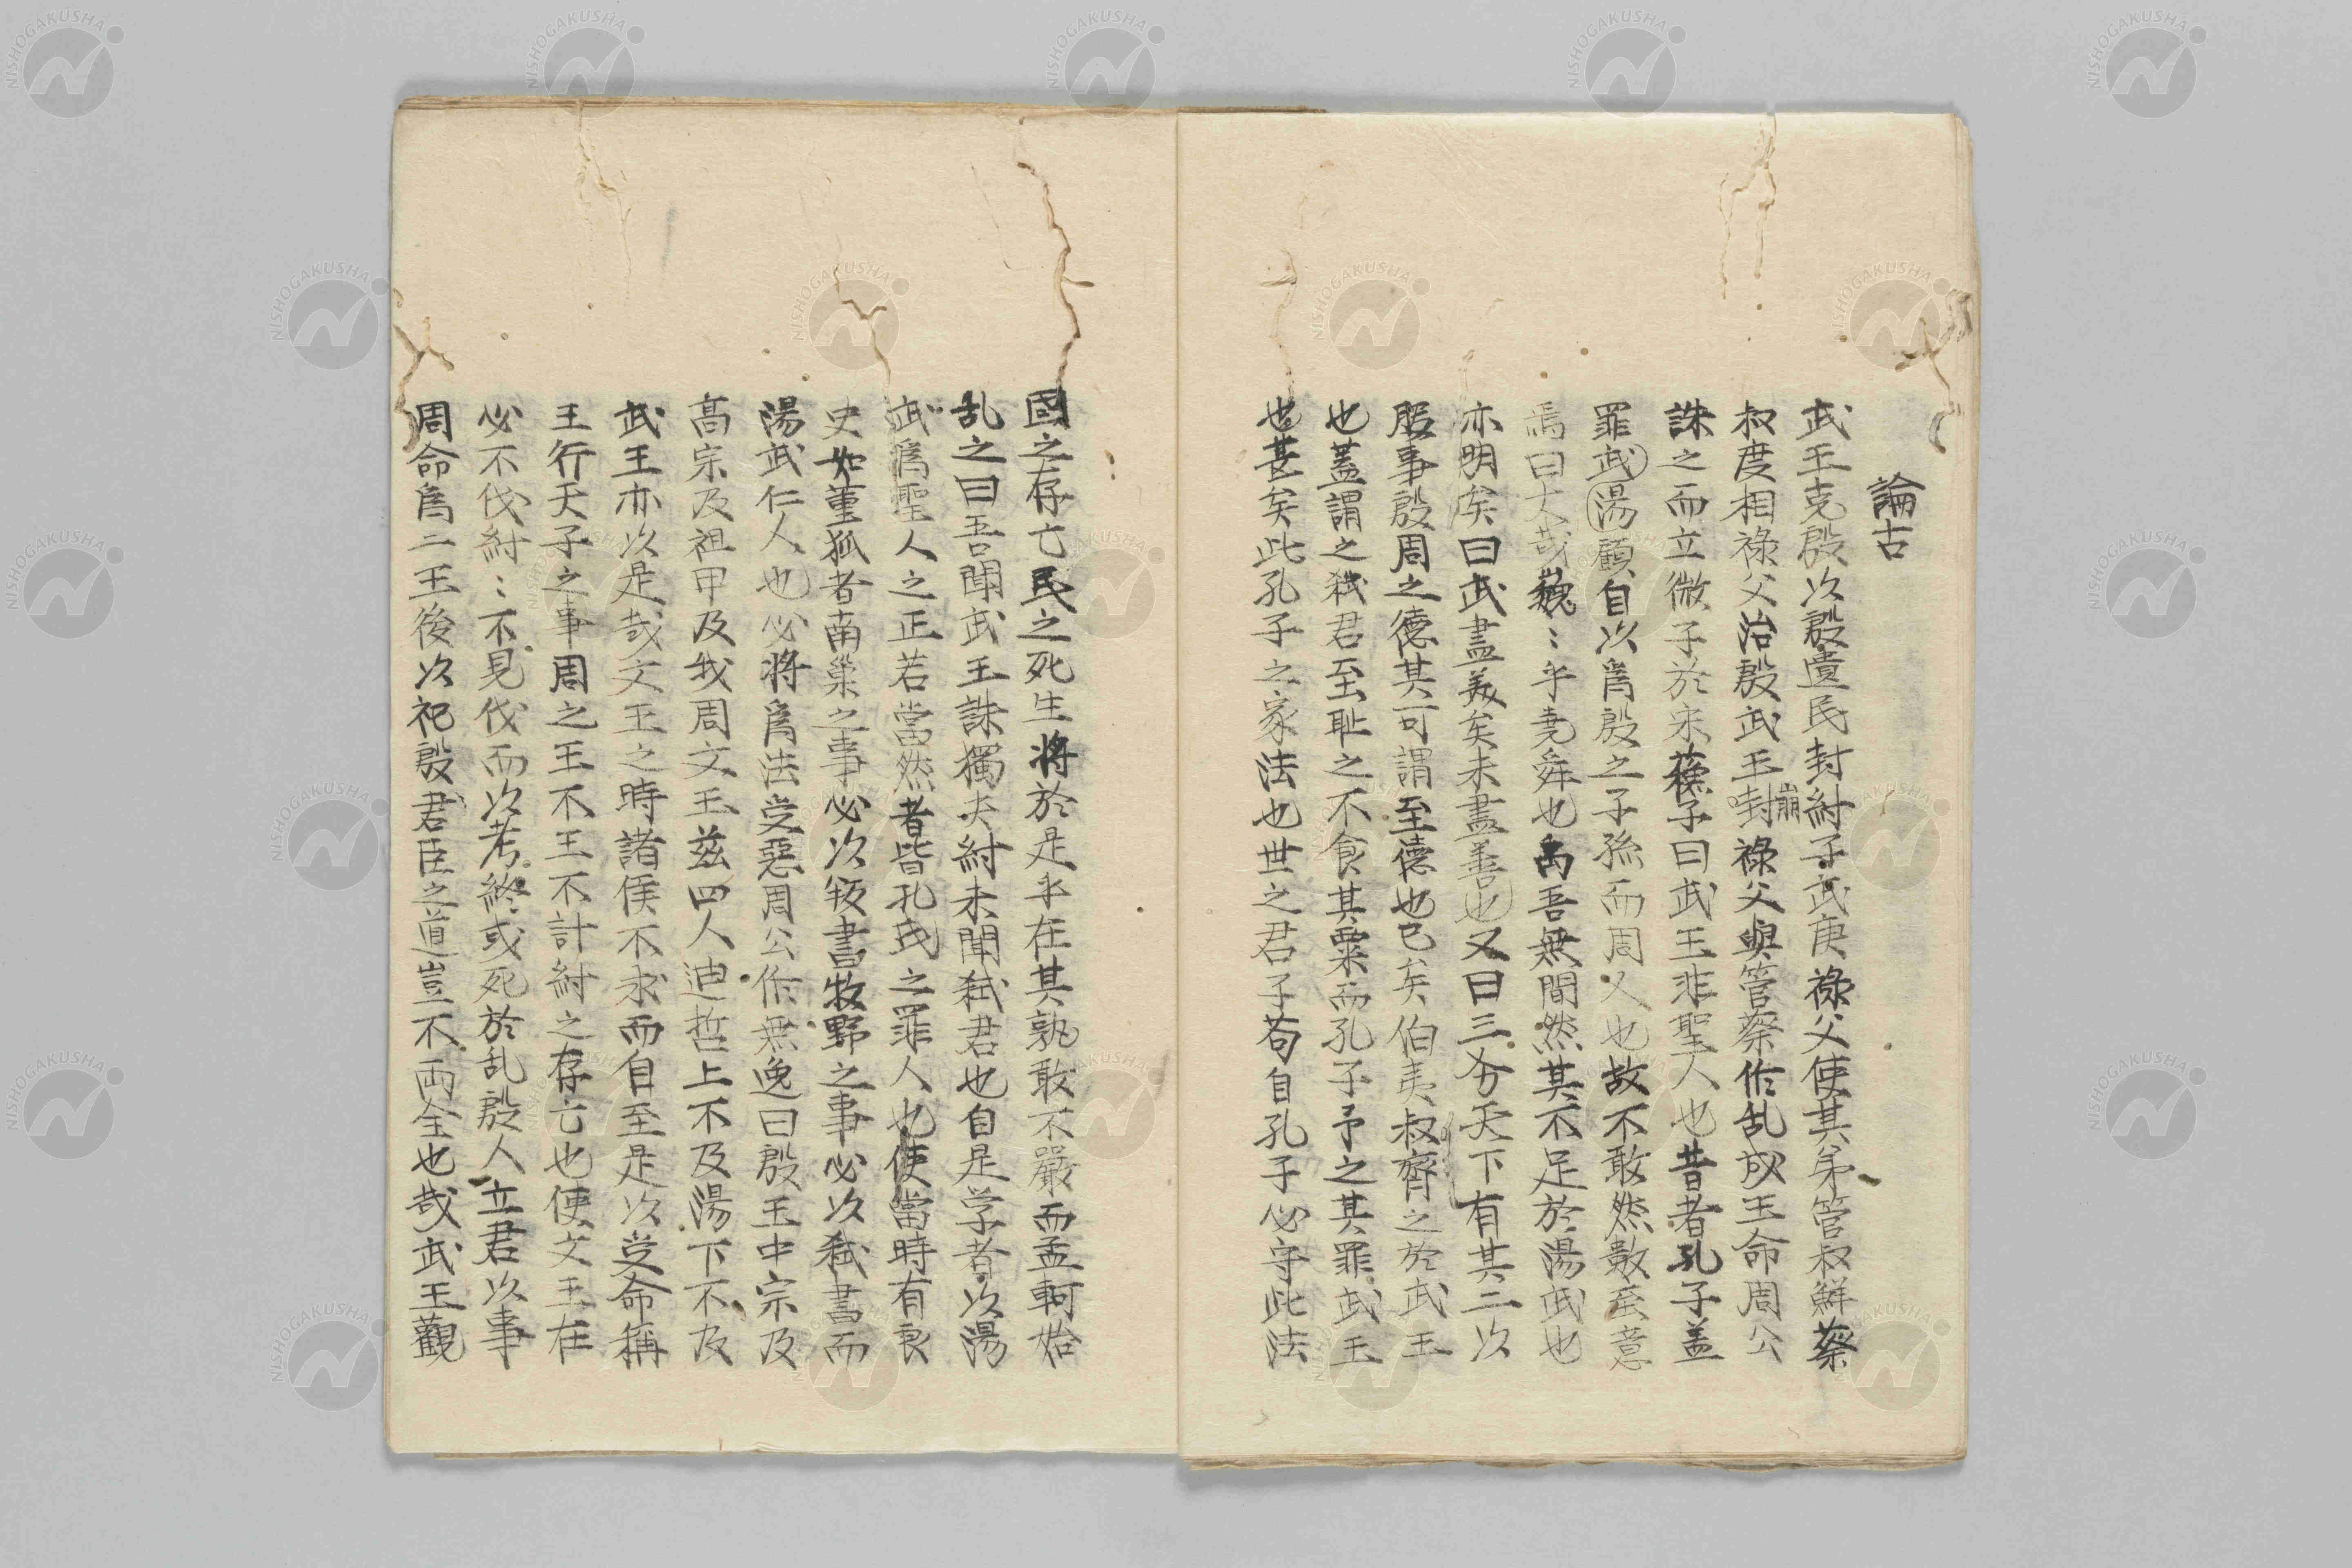 論古
武王克殷以殷遺民封紂子武庚祿父使其弟管叔鮮蔡
叔度相祿父治殷武王封崩祿父與管蔡作乱成王命周公
誅之而立微子於宋蘓子曰武王非聖人也昔者孔子盖
罪武湯顧自以爲殷之子孫而周人也故不敢然數至意
焉曰大哉巍〻乎堯舜也禹吾無間然其不足於湯武也
亦明矣曰武盡美矣未盡善也又曰三分天下有其二以
服事殷周之德其可謂至德也已矣伯夷叔齊之於武王
也蓋謂之弒君至耻之不食其粟而孔子予之其罪武王
也甚矣此孔子之家法也世之君子苟自孔子必守此法
國之存亡民之死生將於是乎在其孰敢不嚴而孟軻始
乱之曰吾聞武王誅獨夫紂未聞弒君也自是学者以湯
武爲聖人之正若當然者皆孔氏之罪人也使當時有良
史如董狐者南巢之事必以叛書牧野之事必以弒書而
湯武仁人也必將爲法受惡周公作無逸曰殷王中宗及
高宗及祖甲及我周文王茲四人迪哲上不及湯下不及
武王亦以是哉文王之時諸侯不求而自至是以受命稱
王行天子之事周之王不王不計紂之存亡也使文王在
必不伐紂〻不見伐而以考終或死於乱殷人立君以事
周命爲二王後以祀殷君臣之道豈不両全也哉武王觀